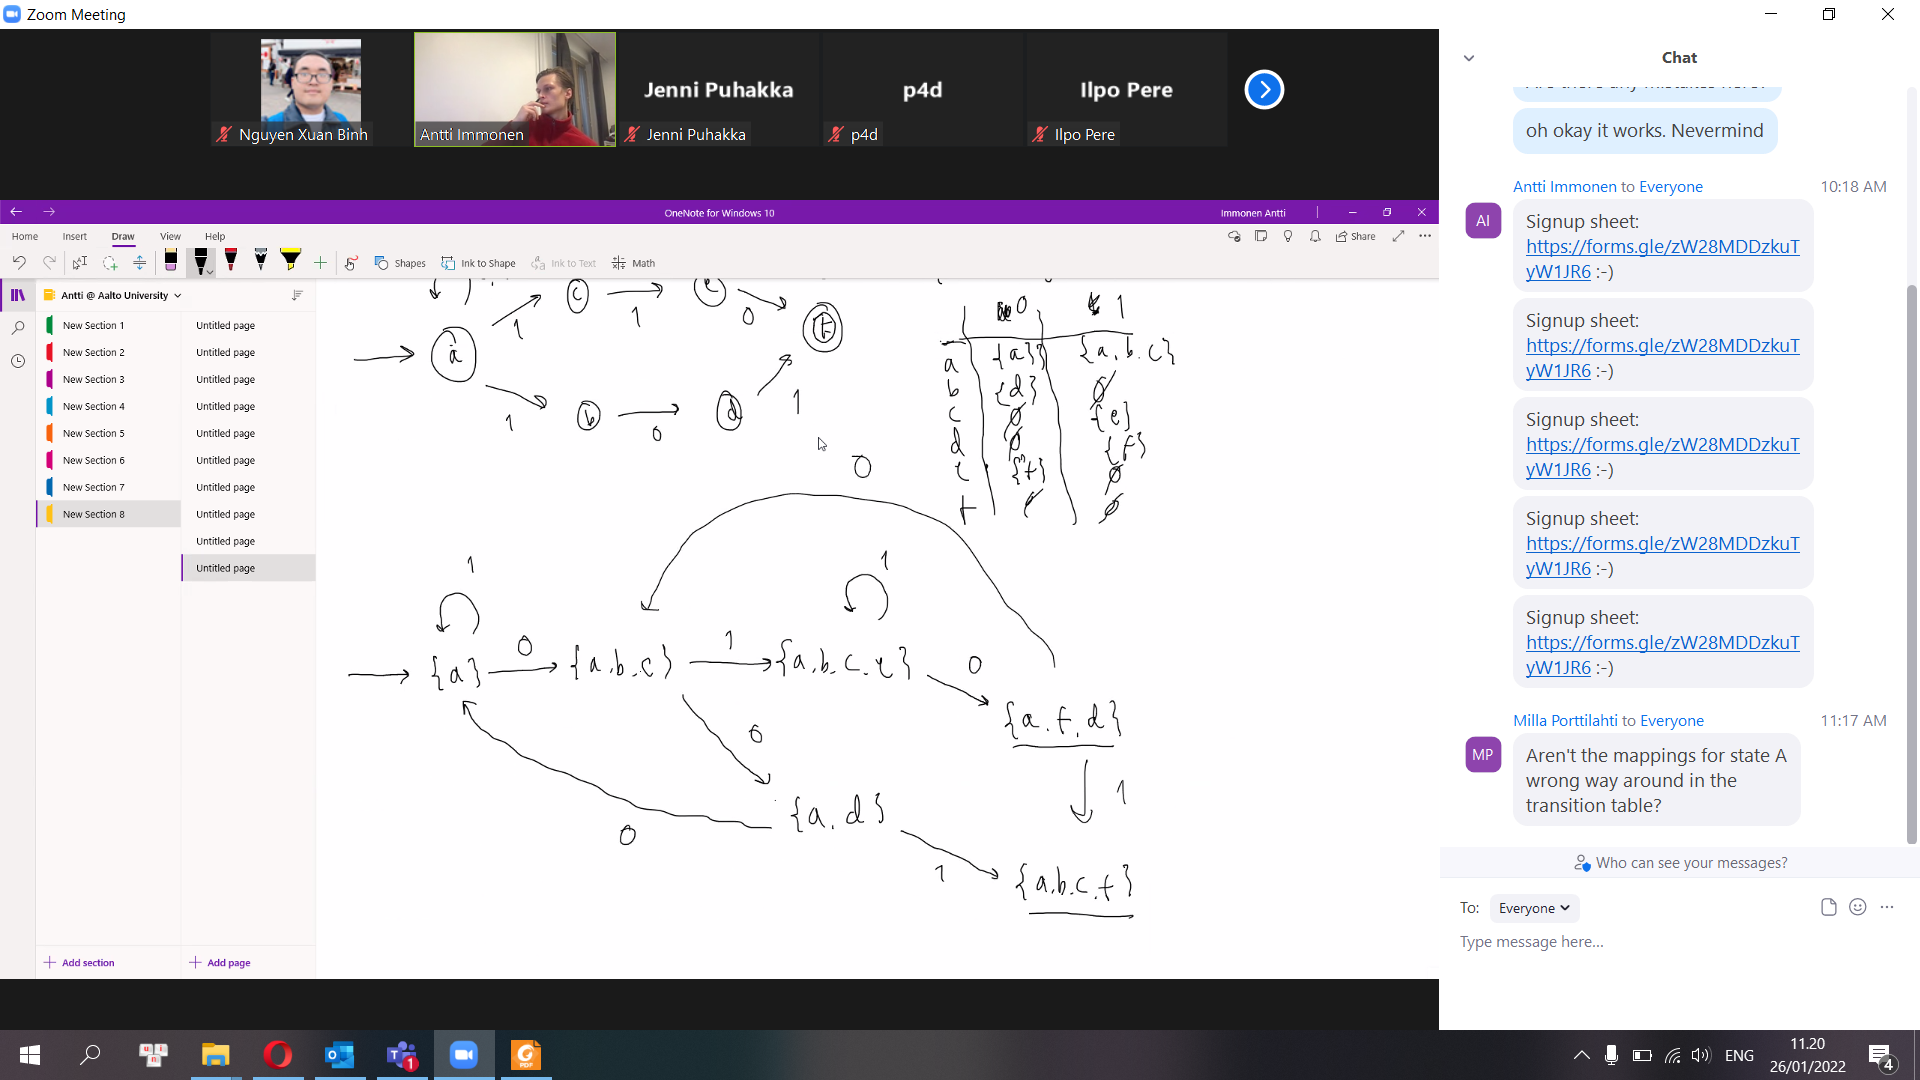 Zoom Meeting
Nguyen Xuan Binh
Antti Immonen
Jenni Puhakka
Jenni Puhakka
p4d
p4d
Ilpo Pere
Ilpo Pere
OneNote for Windows 10
Immonen Antti
Home Insert Draw View Help
Share
Shapes Ink to Shape Ink to Text Math
Antti @ Aalto University
New Section 1
New Section 2
New Section 3
New Section 4
New Section 5
New Section 6
New Section 7
New Section 8
Untitled page
Untitled page
Untitled page
Untitled page
Untitled page
Untitled page
Untitled page
Untitled page
Untitled page
Untitled page
Add section
Add page
c
1 1 0
a
f
1 b 0 d 1
0 1
a {a} {a,b,c}
b {d} ∅
c ∅ {e}
d ∅ {f}
e {f} ∅
f ∅ ∅
0
1 1
{a} 0 {a,b,c} 1 {a,b,c,e} 0
{a,f,d}
0
1
{a,d}
0
1
{a,b,c,f}
Chat
oh okay it works. Nevermind
Antti Immonen to Everyone 10:18 AM
AI
Signup sheet:
https://forms.gle/zW28MDDzkuT
yW1JR6 :-)
Signup sheet:
https://forms.gle/zW28MDDzkuT
yW1JR6 :-)
Signup sheet:
https://forms.gle/zW28MDDzkuT
yW1JR6 :-)
Signup sheet:
https://forms.gle/zW28MDDzkuT
yW1JR6 :-)
Signup sheet:
https://forms.gle/zW28MDDzkuT
yW1JR6 :-)
Milla Porttilahti to Everyone 11:17 AM
MP
Aren't the mappings for state A
wrong way around in the
transition table?
Who can see your messages?
To: Everyone
Type message here...
1
PDF
ENG
11.20
26/01/2022
4